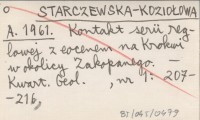 STARCZEWSKA-KOZIOŁOWA
A. 1961. Kontakt serii reg-
lowej z eocenem na Krokwi
w okolicy Zakopanego. —
Kwart. Geol. , nr 1: 207-
-216,
BJ/045/0479